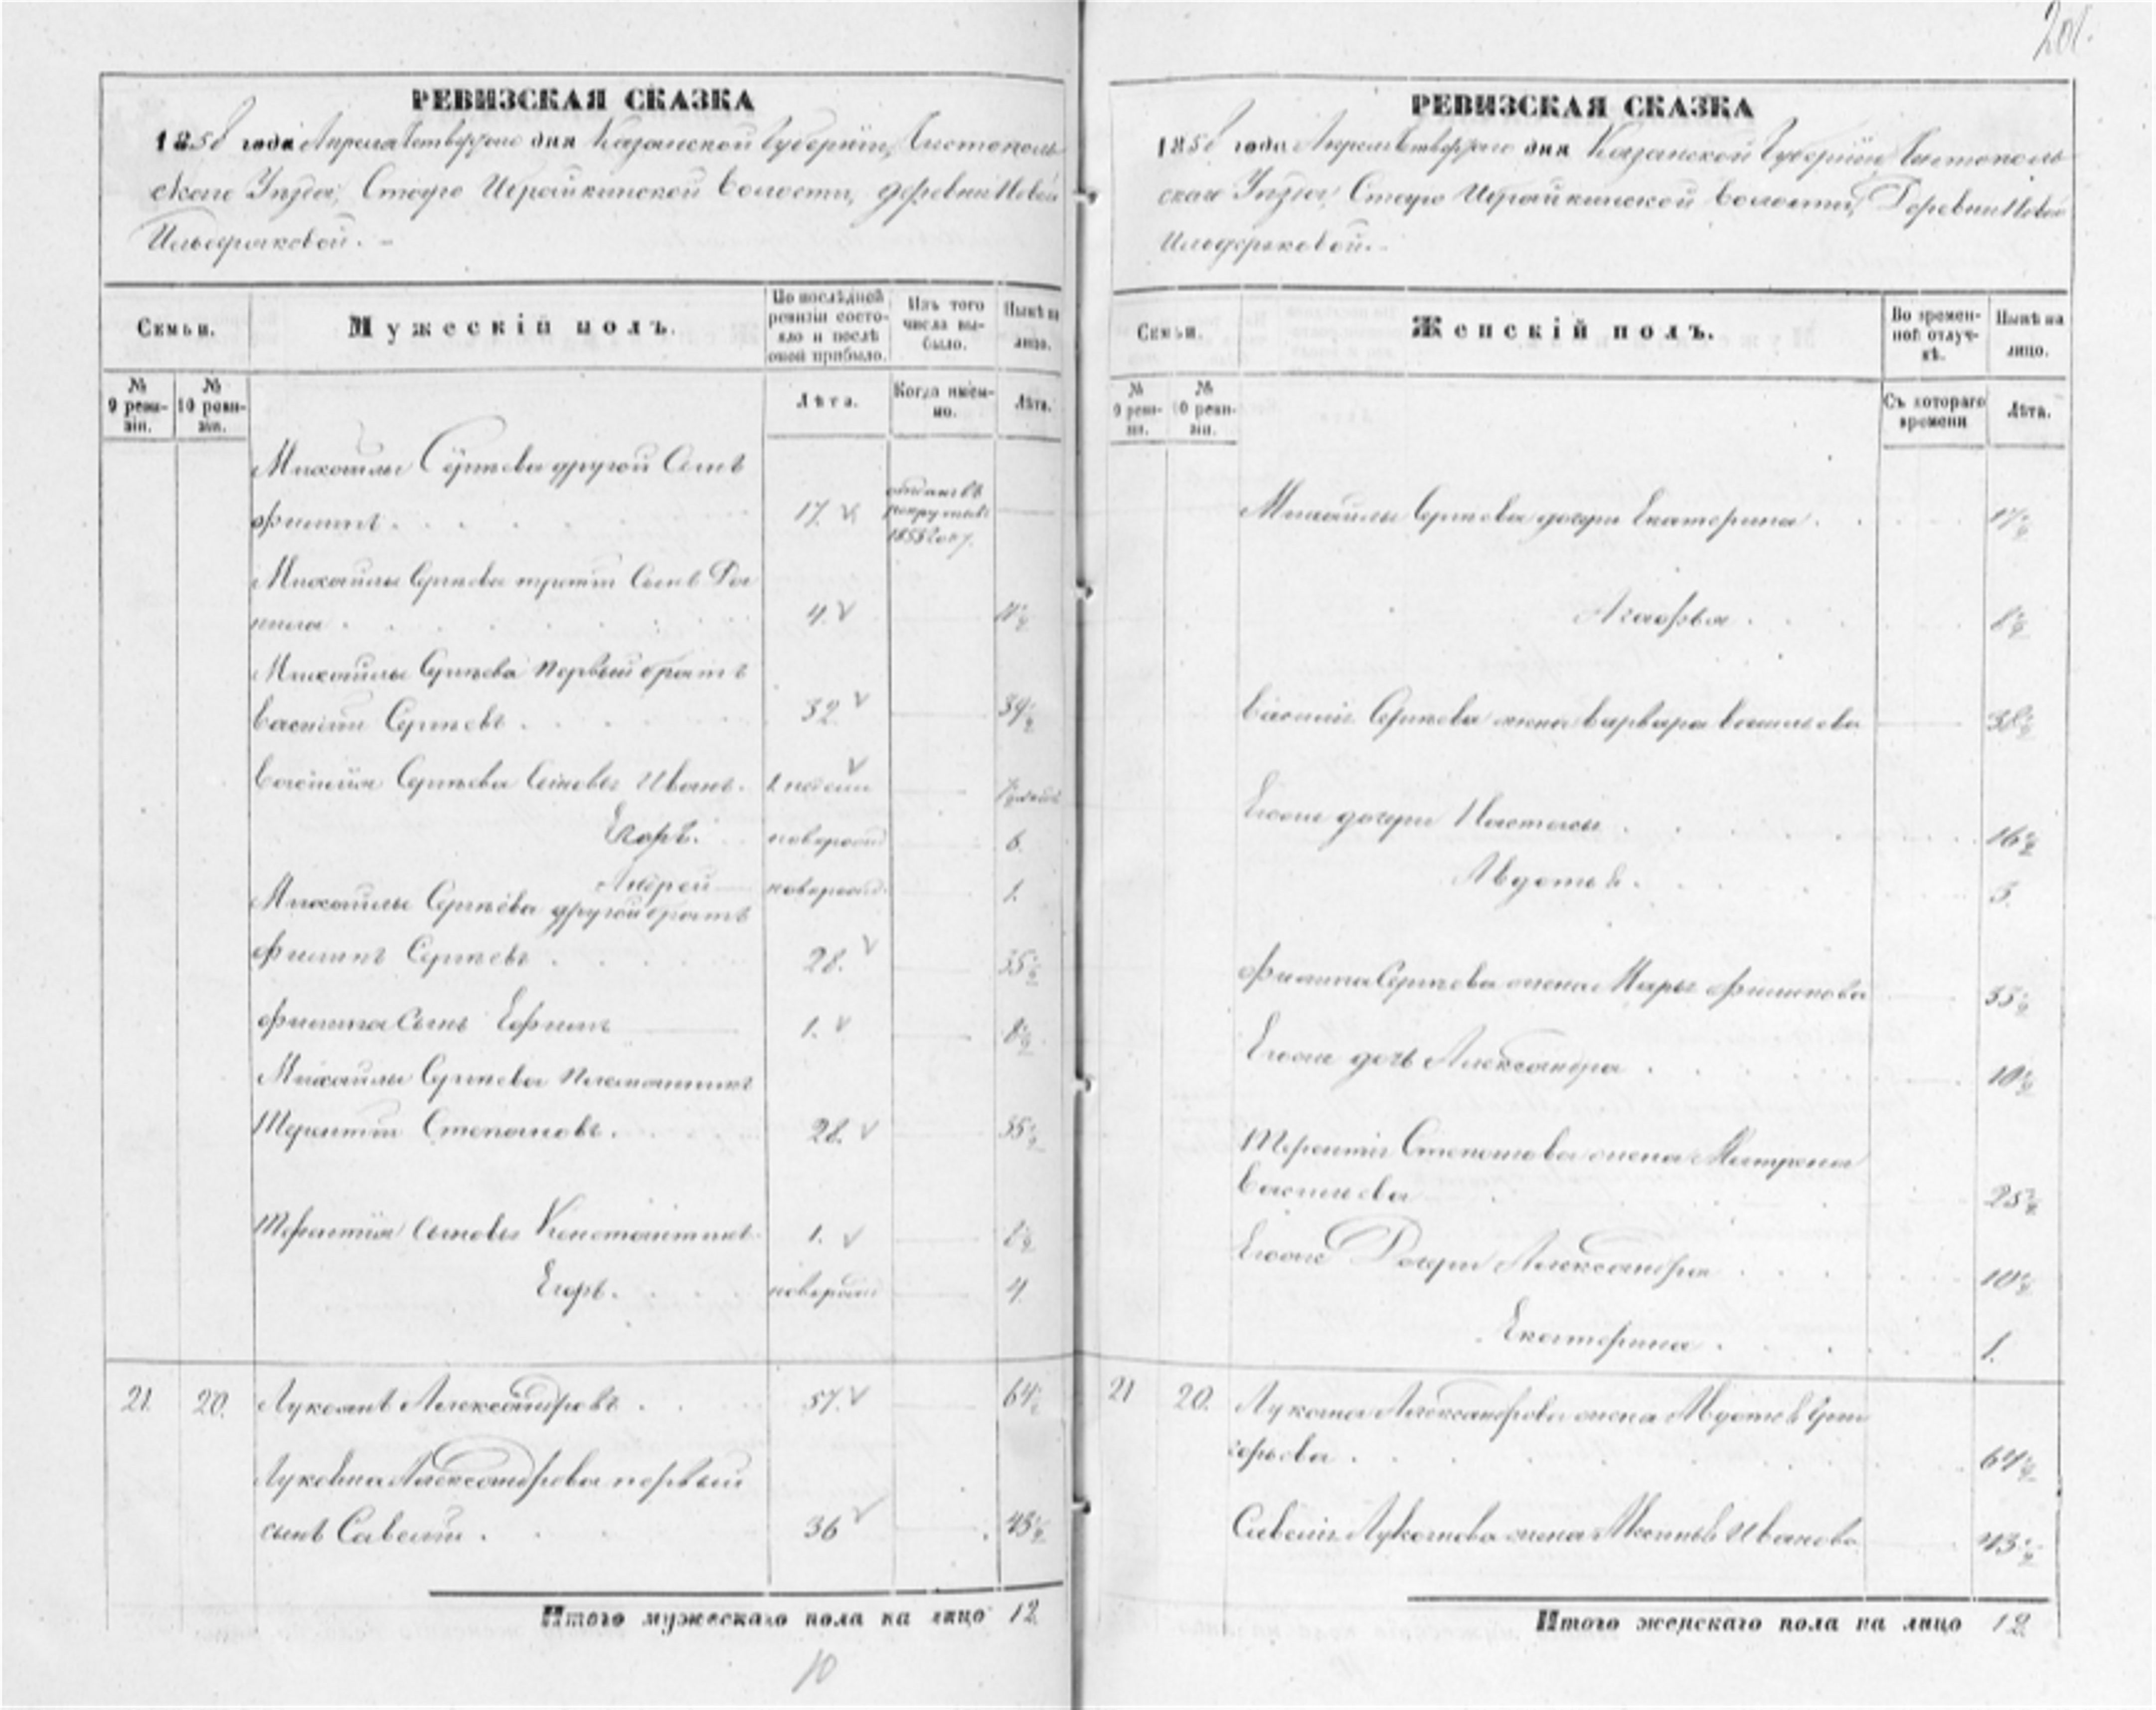 201.
РЕВИЗСКАЯ СКАЗКА
1858 года Апреля Четвертаго дня Казанской Губерніи, Чистополь
скаго Уѣзда, Старо Ибрайкинской Волости, деревни Новой
Ильдеряковой.
Семьи.
Мужескій полъ.
По послѣдней ревизіи состояло и послѣ оной прибыло.
Изъ того числа выбыло.
Нынѣ на лицо.
№ 9 ревизіи.
№ 10 ревизіи.
Лѣта.
Когда именно.
Лѣта.
Михайлы Сергѣева другой Сынъ
Филипъ . 17. отданъ въ рекруты въ
Михайлы Сергѣева третій Сынъ Да
нила . 4. 11½
Михайлы Сергѣева первый братъ
Василій Сергѣевъ . 32 39½
Василія Сергѣева Сыновья Иванъ.
Егоръ. новорожд 6.
Андрей новорожд. 1.
Михайлы Сергѣева другой братъ
Филипъ Сергѣевъ . 28. 35½
Филипа Сынъ Ефимъ 1. 8½
Михайлы Сергѣева племянникъ
Терентій Степановъ . 28. 35½
Терентія Сыновья Константинъ 1. 8½
Егоръ . новорожд 4.
21. 20. Лукоянъ Александровъ . 57. 64½
Лукояна Александрова первый
сынъ Савелій . 36 43½
Итого мужескаго пола на лицо 12
10
РЕВИЗСКАЯ СКАЗКА
1858 года Апреля Четвертаго дня Казанской Губерніи Чистополь
скаго Уѣзда, Старо Ибрайкинской Волости, Деревни Новой
Ильдеряковой.
Семьи.
Женскій полъ.
Во временной отлучкѣ.
Нынѣ на лицо.
№ 9 ревизіи.
№ 10 ревизіи.
Съ котораго времени
Лѣта.
Михайлы Сергѣева дочери Екатерина . 17½
Агафья . 8½
Василія Сергѣева жена Варвара Васильева 38½
Ево дочери Настасья . 16½
Авдотья . 3.
Филипа Сергѣева жена Марья Филипова 35½
дочь Александра . 10½
Терентія Степанова жена Матрена
Васильева 25½
Дочери Александра . 10½
Екатерина . 1.
21 20. Лукояна Александрова жена Авдотья Гри
горьева . 64½
Савелія Лукоянова жена Аксинья Иванова 43½
Итого женскаго пола на лицо 12